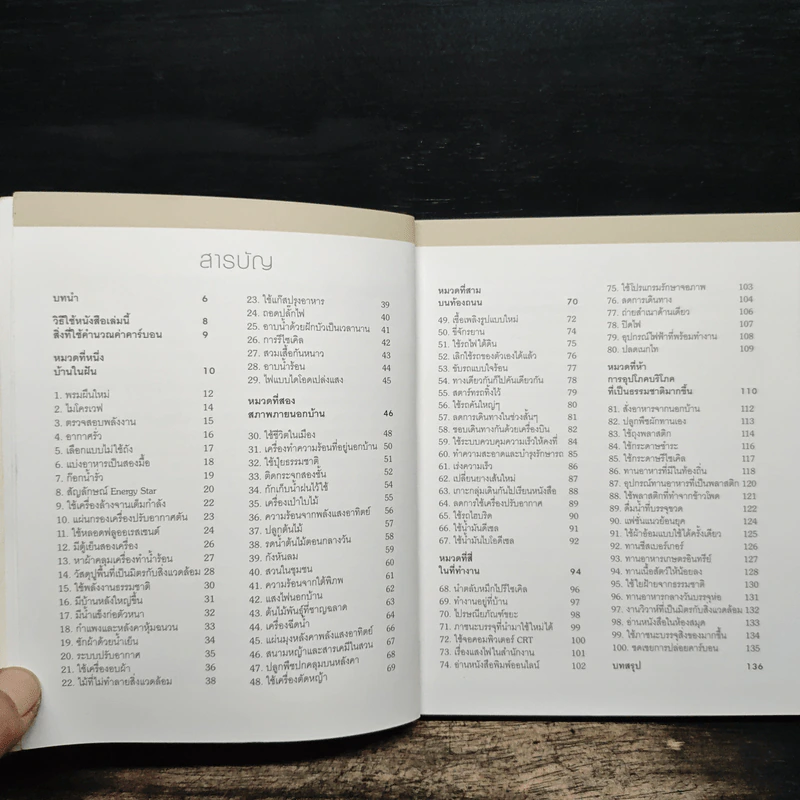 สารบัญ
บทนำ 6
วิธีใช้หนังสือเล่มนี้ 8
สิ่งที่ใช้คำนวณค่าคาร์บอน 9
หมวดที่หนึ่ง
บ้านในฝัน 10
1. พรมผืนใหม่ 12
2. ไมโครเวฟ 14
3. ตรวจสอบพลังงาน 15
4. อากาศรั่ว 16
5. เลือกแบบไม่ใช้ถัง 17
6. แบ่งอาหารเป็นสองมื้อ 18
7. ก๊อกน้ำรั่ว 19
8. สัญลักษณ์ Energy Star 20
9. ใช้เครื่องล้างจานเต็มกำลัง 22
10. แผ่นกรองเครื่องปรับอากาศตัน 23
11. ใช้หลอดฟลูออเรสเซนต์ 24
12. มีตู้เย็นสองเครื่อง 26
13. หาผ้าคลุมเครื่องทำน้ำร้อน 27
14. วัสดุปูพื้นที่เป็นมิตรกับสิ่งแวดล้อม 28
15. ใช้พลังงานธรรมชาติ 30
16. มีบ้านหลังใหญ่ขึ้น 31
17. มีน้ำแข็งก่อตัวหนา 32
18. กำแพงและหลังคาหุ้มฉนวน 33
19. ซักผ้าด้วยน้ำเย็น 34
20. ระบบปรับอากาศ 35
21. ใช้เครื่องอบผ้า 36
22. ไม้ที่ไม่ทำลายสิ่งแวดล้อม 38
23. ใช้แก๊สปรุงอาหาร 39
24. ถอดปลั๊กไฟ 40
25. อาบน้ำด้วยฝักบัวเป็นเวลานาน 41
26. การรีไซเคิล 42
27. สวมเสื้อกันหนาว 43
28. อาบน้ำร้อน 44
29. ไฟแบบไดโอดเปล่งแสง 45
หมวดที่สอง
สภาพภายนอกบ้าน 46
30. ใช้ชีวิตในเมือง 48
31. เครื่องทำความร้อนที่อยู่นอกบ้าน 50
32. ใช้ปุ๋ยธรรมชาติ 51
33. ติดกระจกสองชั้น 52
34. กักเก็บน้ำฝนไว้ใช้ 54
35. เครื่องเป่าใบไม้ 55
36. ความร้อนจากพลังแสงอาทิตย์ 56
37. ปลูกต้นไม้ 57
38. รดน้ำต้นไม้ตอนกลางวัน 58
39. กังหันลม 59
40. สวนในชุมชน 60
41. ความร้อนจากใต้พิภพ 61
42. แสงไฟนอกบ้าน 62
43. ต้นไม้พันธุ์ที่ชาญฉลาด 63
44. เครื่องฉีดน้ำ 64
45. แผ่นมุงหลังคาพลังแสงอาทิตย์ 65
46. สนามหญ้าและสารเคมีในสวน 66
47. ปลูกพืชปกคลุมบนหลังคา 68
48. ใช้เครื่องตัดหญ้า 69
หมวดที่สาม
บนท้องถนน 70
49. เชื้อเพลิงรูปแบบใหม่ 72
50. ขี่จักรยาน 74
51. ใช้รถไฟใต้ดิน 75
52. เลิกใช้รถของตัวเองได้แล้ว 76
53. ขับรถแบบใจร้อน 77
54. ทางเดียวกันก็ไปคันเดียวกัน 78
55. สตาร์ทรถทิ้งไว้ 79
56. ใช้รถคันใหญ่ๆ 80
57. ลดการเดินทางในช่วงสั้นๆ 81
58. ชอบเดินทางด้วยเครื่องบิน 82
59. ใช้ระบบควบคุมความเร็วให้คงที่ 84
60. ทำความสะอาดและบำรุงรักษารถ 85
61. เร่งความเร็ว 86
62. เปลี่ยนยางเส้นใหม่ 87
63. เกาะกลุ่มเดินกันไปเรียนหนังสือ 88
64. ลดการใช้เครื่องปรับอากาศ 89
65. ใช้รถไฮบริด 90
66. ใช้น้ำมันดีเซล 91
67. ใช้น้ำมันไบโอดีเซล 92
หมวดที่สี่
ในที่ทำงาน 94
68. นำตลับหมึกไปรีไซเคิล 96
69. ทำงานอยู่ที่บ้าน 97
70. ไปรษณียภัณฑ์ขยะ 98
71. ภาชนะบรรจุที่นำมาใช้ใหม่ได้ 99
72. ใช้จอคอมพิวเตอร์ CRT 100
73. เรื่องแสงไฟในสำนักงาน 101
74. อ่านหนังสือพิมพ์ออนไลน์ 102
75. ใช้โปรแกรมรักษาจอภาพ 103
76. ลดการเดินทาง 104
77. ถ่ายสำเนาด้านเดียว 106
78. ปิดไฟ 107
79. อุปกรณ์ไฟฟ้าที่พร้อมทำงาน 108
80. ปลดเนกไท 109
หมวดที่ห้า
การอุปโภคบริโภค
ที่เป็นธรรมชาติมากขึ้น 110
81. สั่งอาหารจากนอกบ้าน 112
82. ปลูกพืชผักทานเอง 113
83. ใช้ถุงพลาสติก 114
84. ใช้กระดาษชำระ 116
85. ใช้กระดาษรีไซเคิล 117
86. ทานอาหารที่มีในท้องถิ่น 118
87. อุปกรณ์ทานอาหารที่เป็นพลาสติก 120
88. ใช้พลาสติกที่ทำจากข้าวโพด 121
89. ดื่มน้ำที่บรรจุขวด 122
90. แฟชันแนวย้อนยุค 124
91. ใช้ผ้าอ้อมแบบใช้ได้ครั้งเดียว 125
92. ทานชีสเบอร์เกอร์ 126
93. ทานอาหารเกษตรอินทรีย์ 127
94. ทานเนื้อสัตว์ให้น้อยลง 128
95. ใช้ใยฝ้ายจากธรรมชาติ 130
96. ทานอาหารกลางวันบรรจุห่อ 131
97. งานวิวาห์ที่เป็นมิตรกับสิ่งแวดล้อม 132
98. อ่านหนังสือในห้องสมุด 133
99. ใช้ภาชนะบรรจุสิ่งของมากขึ้น 134
100. ชดเชยการปล่อยคาร์บอน 135
บทสรุป 136